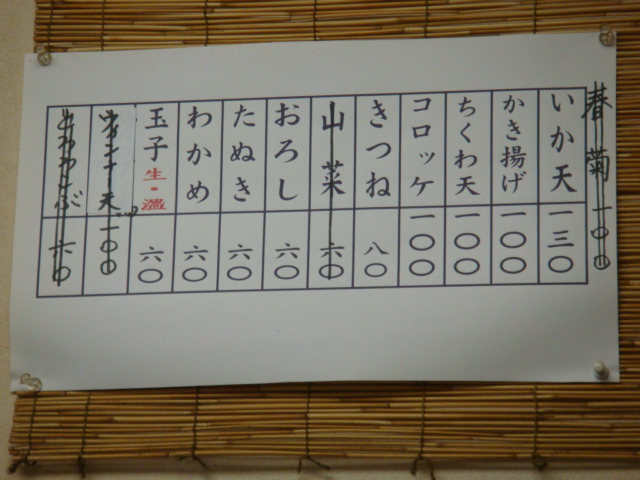 春菊 一〇〇
いか天 一三〇
かき揚げ 一〇〇
ちくわ天 一〇〇
コロッケ 一〇〇
きつね 八〇
山菜 六〇
おろし 六〇
たぬき 六〇
わかめ 六〇
玉子 生・温 六〇
天 一〇〇
六〇